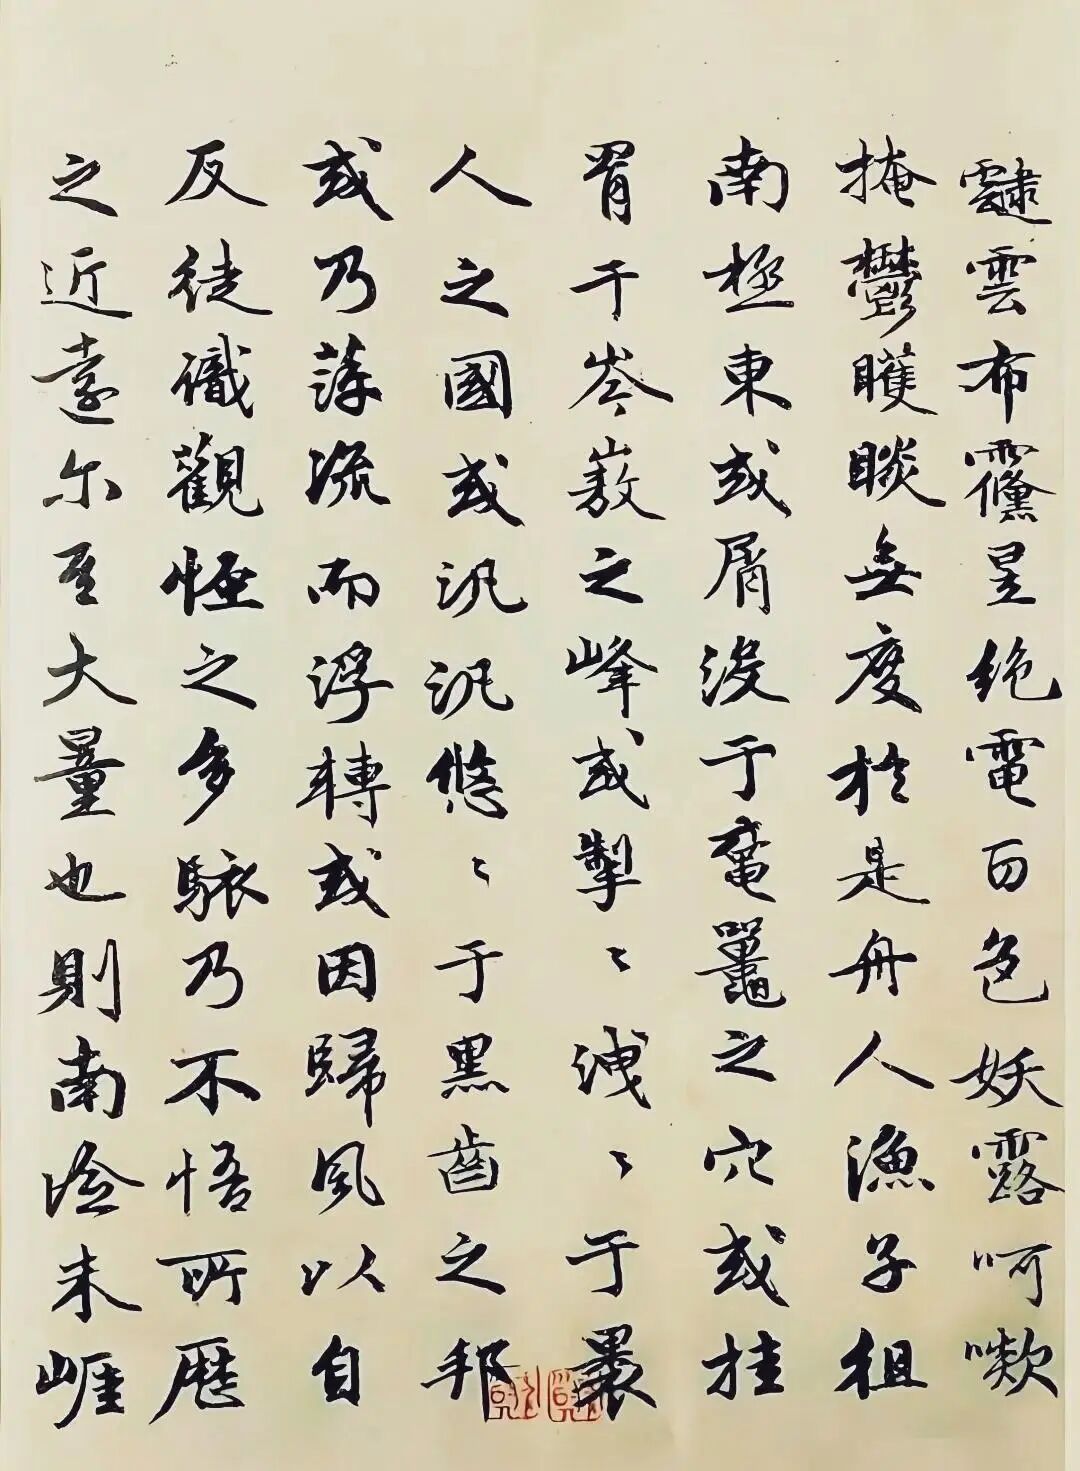 靅雲布䨴昱絕電百色妖露呵嗽
掩鬱矆睒無度於是舟人漁子徂
南極東或屑沒于黿鼉之穴或挂
罥于岑嶅之峰或掣〻洩〻于裸
人之國或汎汎悠〻于黑齒之邦
或乃萍流而浮轉或因歸風以自
反徒識觀怪之多駭乃不悟所歷
之近遠尔其大量也則南澰朱崕